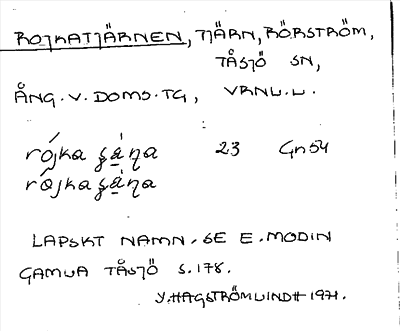 ROJKATJÄRNEN, TJÄRN, RÖRSTRÖM,
TÅSJÖ SN,
ÅNG. V. DOMS. TG, VRNL. L.
23 Gn 54
LAPSKT NAMN. SE E. MODIN
GAMLA TÅSJÖ S. 178.
Y. HAGSTRÖM LINDH 1971.